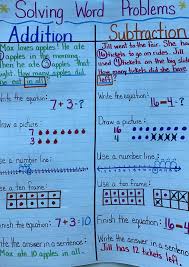 Solving Word Problems
Addition
Subtraction
Max loves apples! He ate
7 apples in the morning,
then he ate 3 apples that
night. How many apples did
he eat in all?
Jill went to the fair. She had
16 tickets to go on rides. Jill
used 4 tickets on the big slide.
How many tickets did she have
left?
Write the equation:
7+3=?
Write the equation:
16-4=?
Draw a picture:
Draw a picture:
Use a number line:
Use a number line:
Use a ten frame:
Use a ten frame:
Finish the equation: 7+3=10
Finish the equation: 16-4=
Write the answer in a sentence:
Max ate 10 apples in all.
Write the answer in a sentence:
Jill has 12 tickets left.